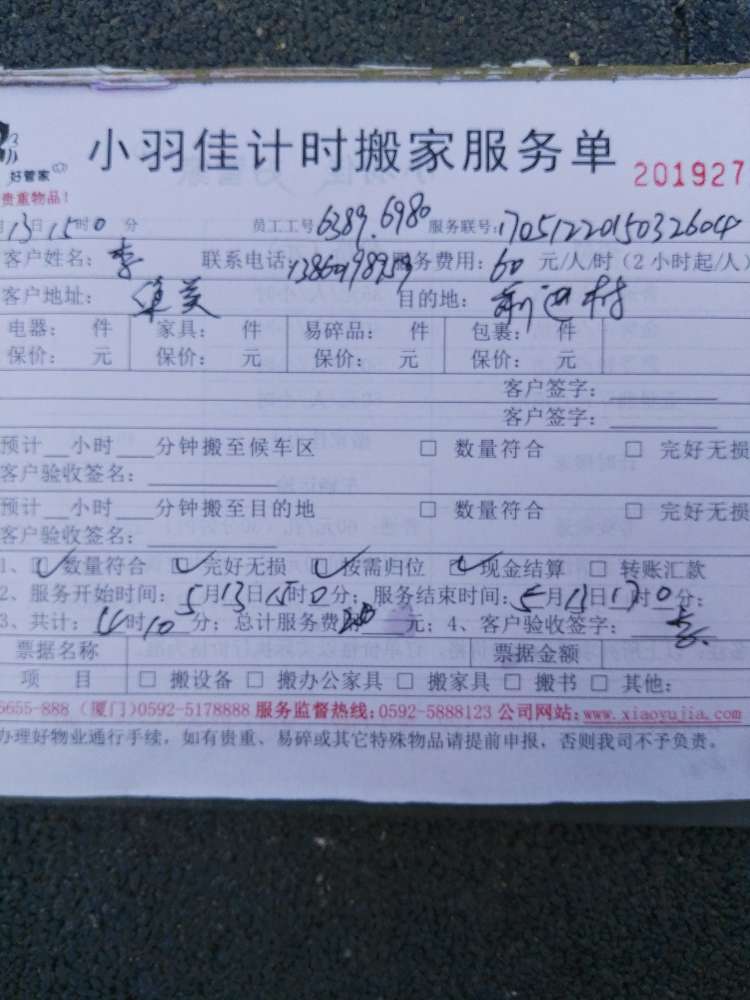 小羽佳计时搬家服务单
好管家
201927
贵重物品！
月13日15时0分 员工工号6389.6980 服务联号:1705122015032604
客户姓名：李 联系电话: 服务费用：60元/人/时（2小时起/人）
客户地址： 目的地：村
电器： 件 家具： 件 易碎品： 件 包裹： 件
保价： 元 保价： 元 保价： 元 保价： 元
客户签字：
客户签字：
预计__小时___分钟搬至候车区 □ 数量符合 □ 完好无损
客户验收签名：
预计__小时___分钟搬至目的地 □ 数量符合 □ 完好无损
客户验收签名：
1、☑数量符合 ☑完好无损 ☑按需归位 ☑现金结算 □ 转账汇款
2、服务开始时间：5月13日15时0分；服务结束时间：5月13日17时0分；
3、共计：时10分；总计服务费用 元；4、客户验收签字：
票据名称 票据金额
项 目 □ 搬设备 □ 搬办公家具 □ 搬家具 □ 搬书 □ 其他：
6655-888（厦门）0592-5178888 服务监督热线：0592-5888123 公司网站：www.xiaoyujia.com
办理好物业通行手续，如有贵重、易碎或其它特殊物品请提前申报，否则我司不予负责。